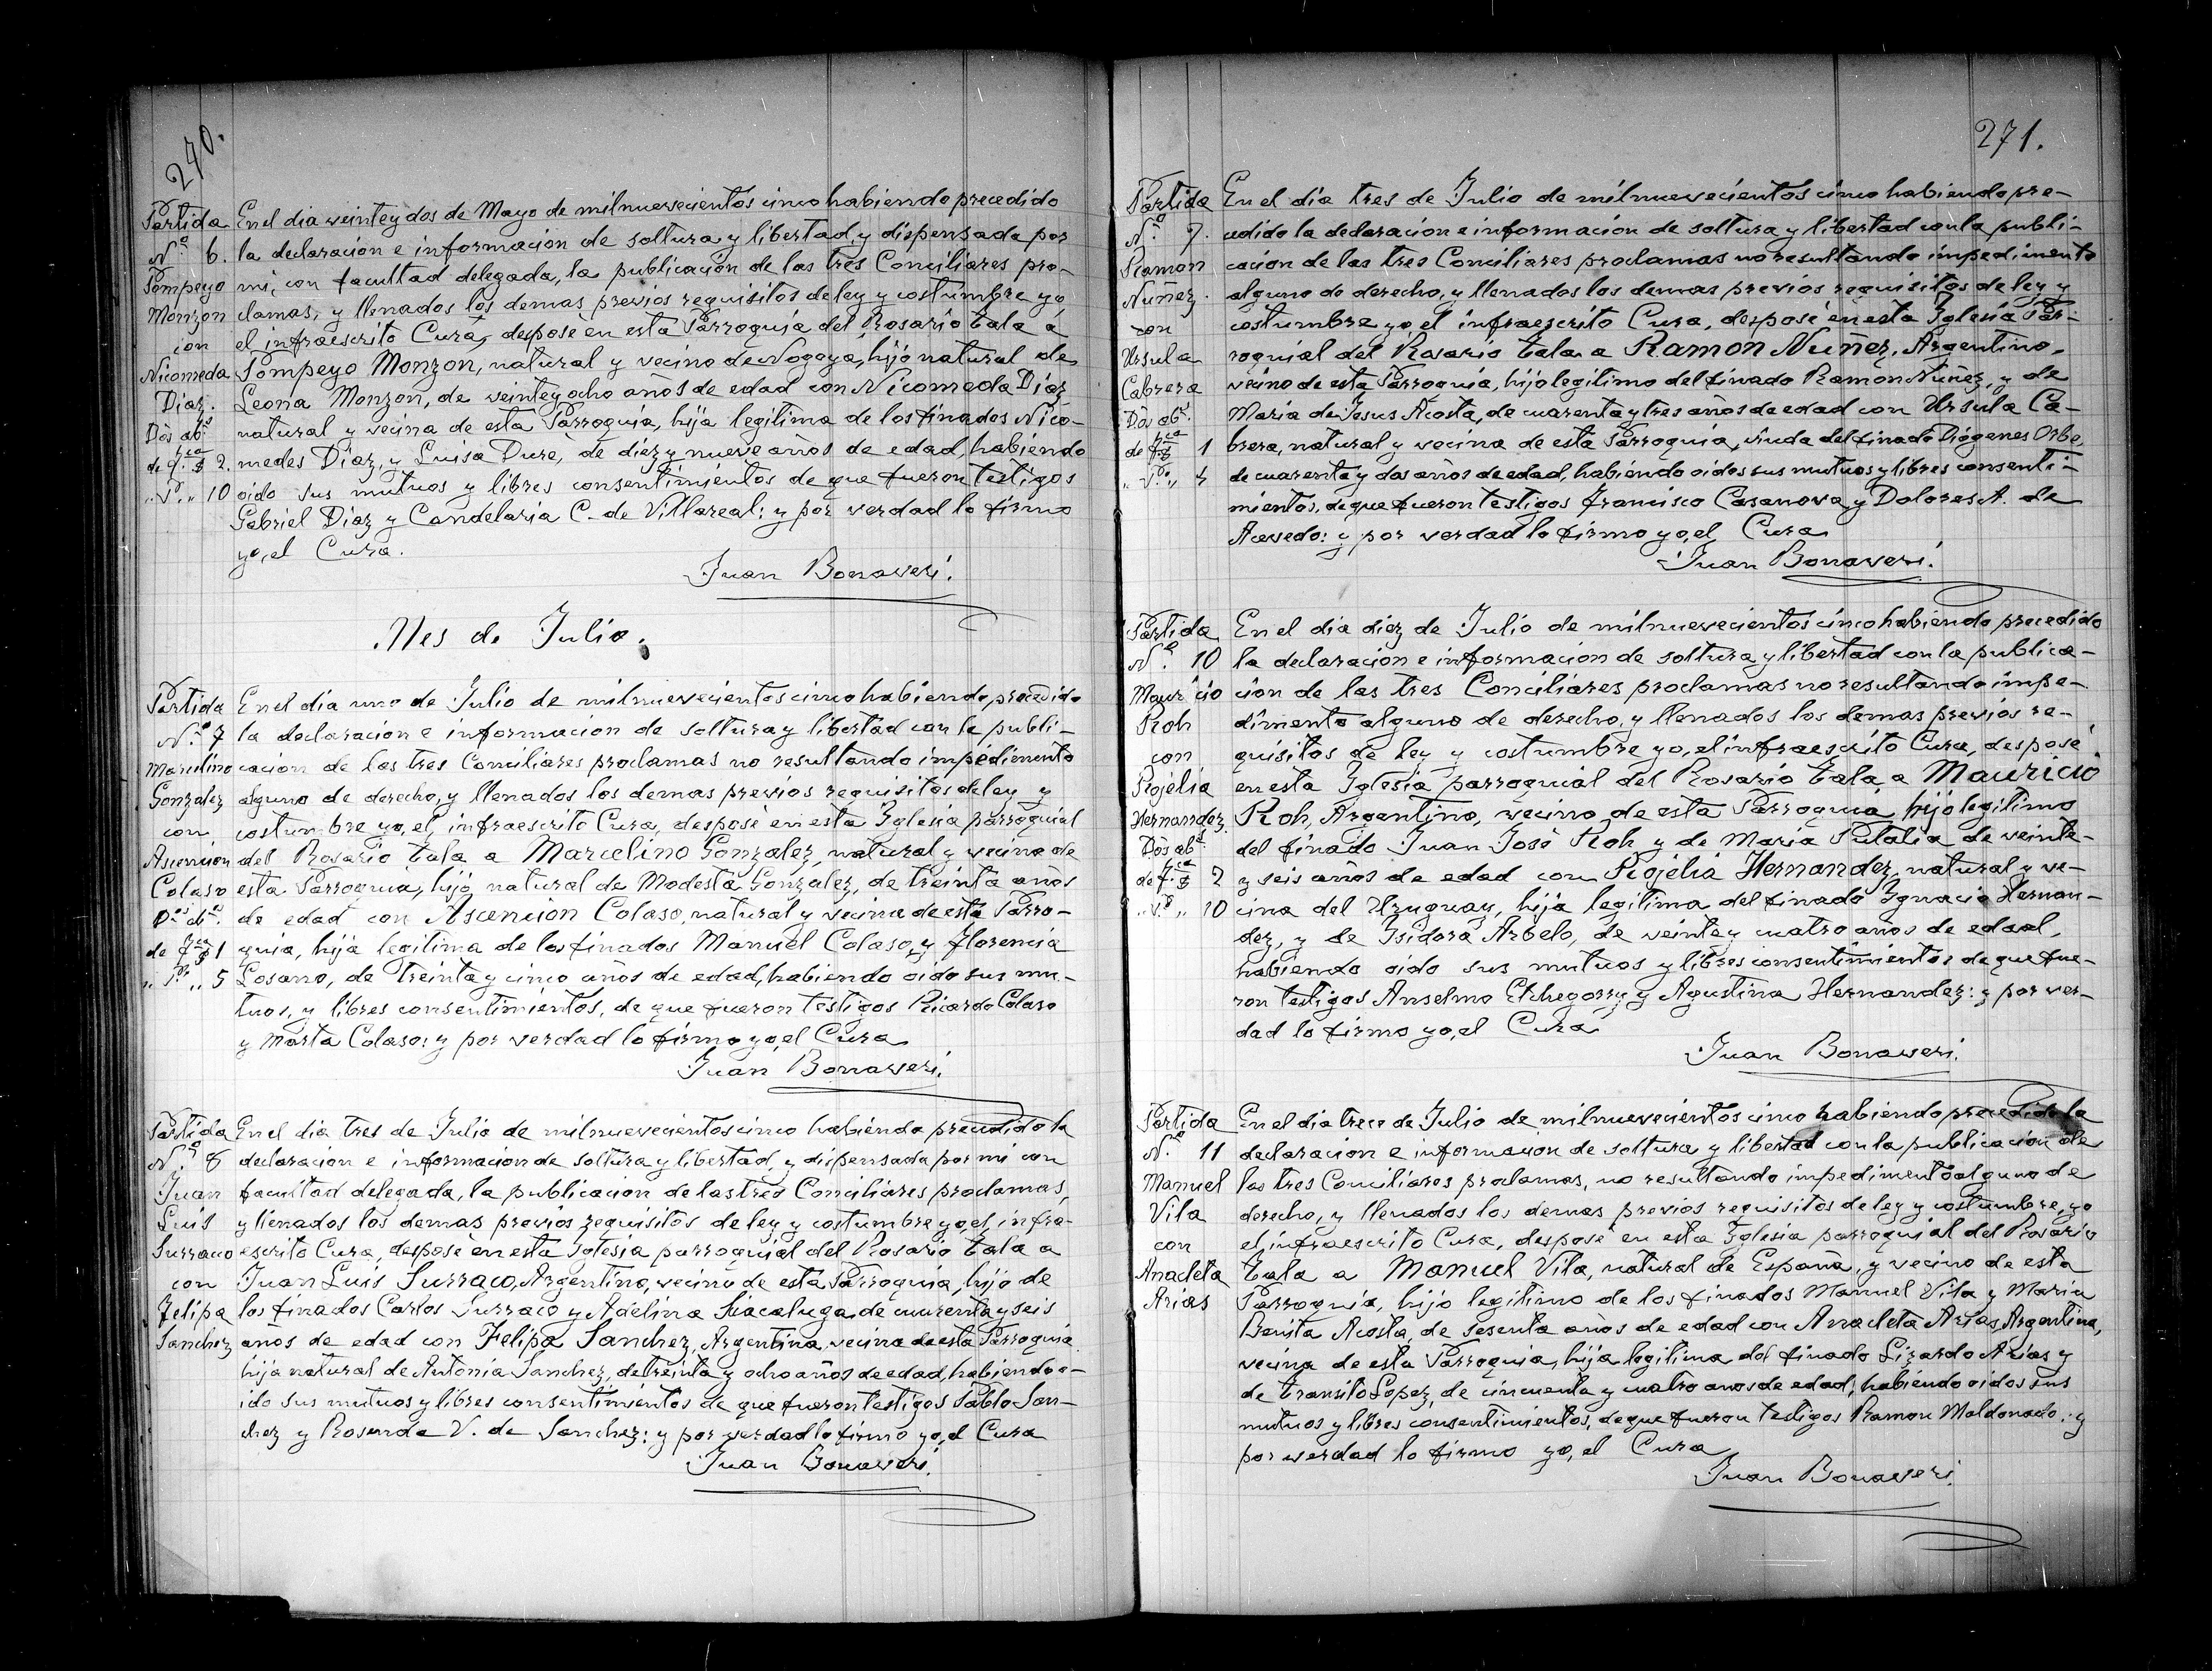 270.
Partida
Nº 6.
Pompeyo
Monzon
con
Nicomeda
Diaz.
Dós abs
de fca $ 2.
" Pº " 10
En el dia veinte y dos de Mayo de mil nuevecientos cinco habiendo precedido
la declaracion e informacion de soltura y libertad, y dispensada por
mi, con facultad delegada, la publicación de las tres Conciliares pro-
clamas, y llenados los demas previos requisitos de ley y costumbre yo,
el infraescrito Cura, desposé en esta Parroquia del Rosario Tala a
Pompeyo Monzon, natural y vecino de Nogoya, hijo natural de
Leona Monzon, de veinte y ocho años de edad con Nicomeda Diaz
natural y vecina de esta Parroquia, hija legitima de los finados Nico-
medes Diaz, y Luisa Duré, de diez y nueve años de edad, habiendo
oido sus mutuos y libres consentimientos de que fueron testigos
Gabriel Diaz y Candelaria C. de Villareal: y por verdad lo firmo
yo, el Cura.
Juan Bonaveri.
Mes de Julio.
Partida
Nº 7
Marcelino
Gonzalez
con
Ascencion
Colaso
Dós abs
de fca $ 1
" Pº " 5
En el dia uno de Julio de mil nuevecientos cinco habiendo precedido
la declaracion e informacion de soltura y libertad con la publi-
cacion de las tres Conciliares proclamas no resultando impedimento
alguno de derecho, y llenados los demas previos requisitos de ley y
costumbre yo, el infraescrito Cura, desposé en esta Iglesia parroquial
del Rosario Tala a Marcelino Gonzalez, natural y vecino de
esta Parroquia, hijo natural de Modesta Gonzalez, de treinta años
de edad con Ascencion Colaso, natural y vecina de esta Parro-
quia, hija legitima de los finados Manuel Colaso, y Florencia
Losano, de treinta y cinco años de edad, habiendo oido sus mu-
tuos, y libres consentimientos, de que fueron testigos Ricardo Colaso
y Marta Colaso: y por verdad lo firmo yo, el Cura
Juan Bonaveri.
Partida
Nº 8
Juan
Luis
Surraco
con
Felipa
Sanchez
En el dia tres de Julio de mil nuevecientos cinco habiendo precedido la
declaracion e informacion de soltura y libertad, y dispensada por mi con
facultad delegada, la publicacion de las tres Conciliares proclamas,
y llenados los demas previos requisitos de ley y costumbre yo, el infra-
escrito Cura, desposé en esta Iglesia parroquial del Rosario Tala a
Juan Luis Surraco, Argentino, vecino de esta Parroquia, hijo de
los finados Carlos Surraco y Adelina Siacaluga, de cuarenta y seis
años de edad con Felipa Sanchez, Argentina, vecina de esta Parroquia
hija natural de Antonia Sanchez, de treinta y ocho años de edad, habiendo o-
ido sus mutuos y libres consentimientos de que fueron testigos Pablo San-
chez y Rosenda V. de Sanchez: y por verdad lo firmo yo, el Cura
Juan Bonaveri.
271.
Partida
Nº 9.
Ramon
Nuñez.
con
Ursula
Cabrera
Dós abs
de fca $ 1
" Pº " 4
En el dia tres de Julio de mil nuevecientos cinco habiendo pre-
cedido la declaracion e informacion de soltura y libertad con la publi-
cacion de las tres Conciliares proclamas no resultando impedimento
alguno de derecho, y llenados los demas previos requisitos de ley y
costumbre yo, el infraescrito Cura, desposé en esta Iglesia Par-
roquial del Rosario Tala a Ramon Nuñez, Argentino,
vecino de esta Parroquia, hijo legitimo del finado Ramon Nuñez, y de
Maria de Jesus Acosta, de cuarenta y tres años de edad con Ursula Ca-
brera, natural y vecina de esta Parroquia, viuda del finado Diógenes Orbe,
de cuarenta y dos años de edad, habiendo oidos sus mutuos y libres consenti-
mientos, de que fueron testigos Francisco Casanova y Dolores A. de
Acevedo: y por verdad lo firmo yo, el Cura
Juan Bonaveri.
Partida
Nº 10
Mauricio
Roh
con
Rojelia
Hernandez
Dós abs
de fca $ 2
" Pº " 10
En el dia diez de Julio de mil nuevecientos cinco habiendo precedido
la declaracion e informacion de soltura y libertad con la publica-
cion de las tres Conciliares proclamas no resultando impe-
dimento alguno de derecho, y llenados los demas previos re-
quisitos de ley y costumbre yo, el infraescrito Cura, desposé
en esta Iglesia parroquial del Rosario Tala a Mauricio
Roh, Argentino, vecino de esta Parroquia, hijo legitimo
del finado Juan José Roh y de Maria Putalia de veinte
y seis años de edad con Rojelia Hernandez, natural y ve-
cina del Uruguay, hija legitima del finado Ignacio Hernan-
dez, y de Isidora Arbelo, de veinte y cuatro años de edad,
habiendo oido sus mutuos y libres consentimientos de que fue-
ron testigos Anselmo Etchegorry y Agustina Hernandez: y por ver-
dad lo firmo yo, el Cura
Juan Bonaveri.
Partida
Nº 11
Manuel
Vila
con
Anacleta
Arias
En el dia trece de Julio de mil nuevecientos cinco habiendo precedido la
declaracion e informacion de soltura y libertad con la publicación de
las tres Conciliares proclamas, no resultando impedimento alguno de
derecho, y llenados los demas previos requisitos de ley y costumbre, yo
el infraescrito Cura, desposé en esta Iglesia parroquial del Rosario
Tala a Manuel Vila, natural de España, y vecino de esta
Parroquia, hijo legitimo de los finados Manuel Vila y Maria
Benita Acosta, de sesenta años de edad con Anacleta Arias, Argentina,
vecina de esta Parroquia, hija legitima del finado Lizardo Arias y
de Transito Lopez, de cincuenta y cuatro anos de edad, habiendo oidos sus
mutuos y libres consentimientos, de que fueron testigos Ramon Maldonado: y
por verdad lo firmo yo, el Cura
Juan Bonaveri.